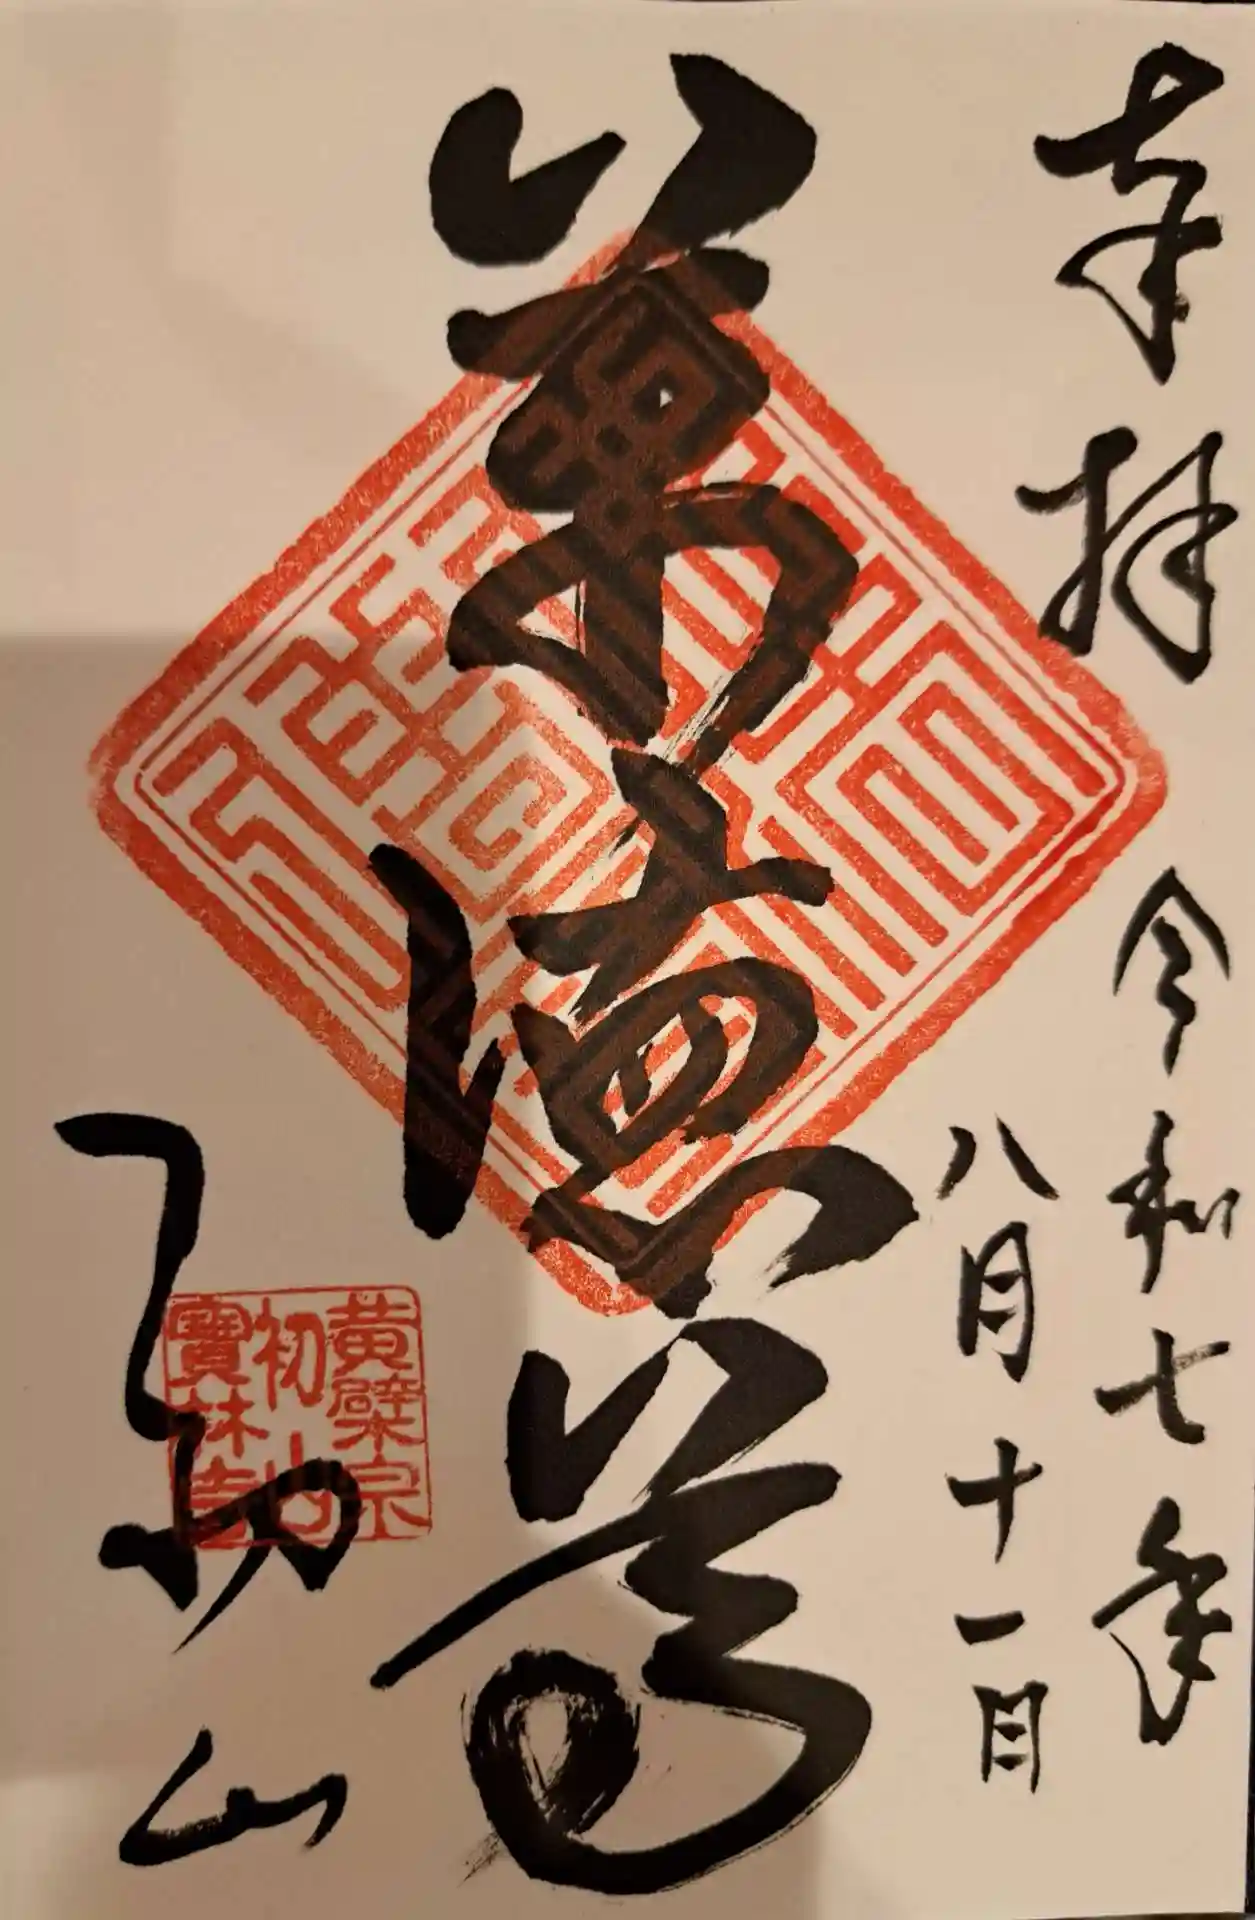 奉拝 令和七年
八月十一日
萬德尊
初山
黄檗宗
初山
寶林寺